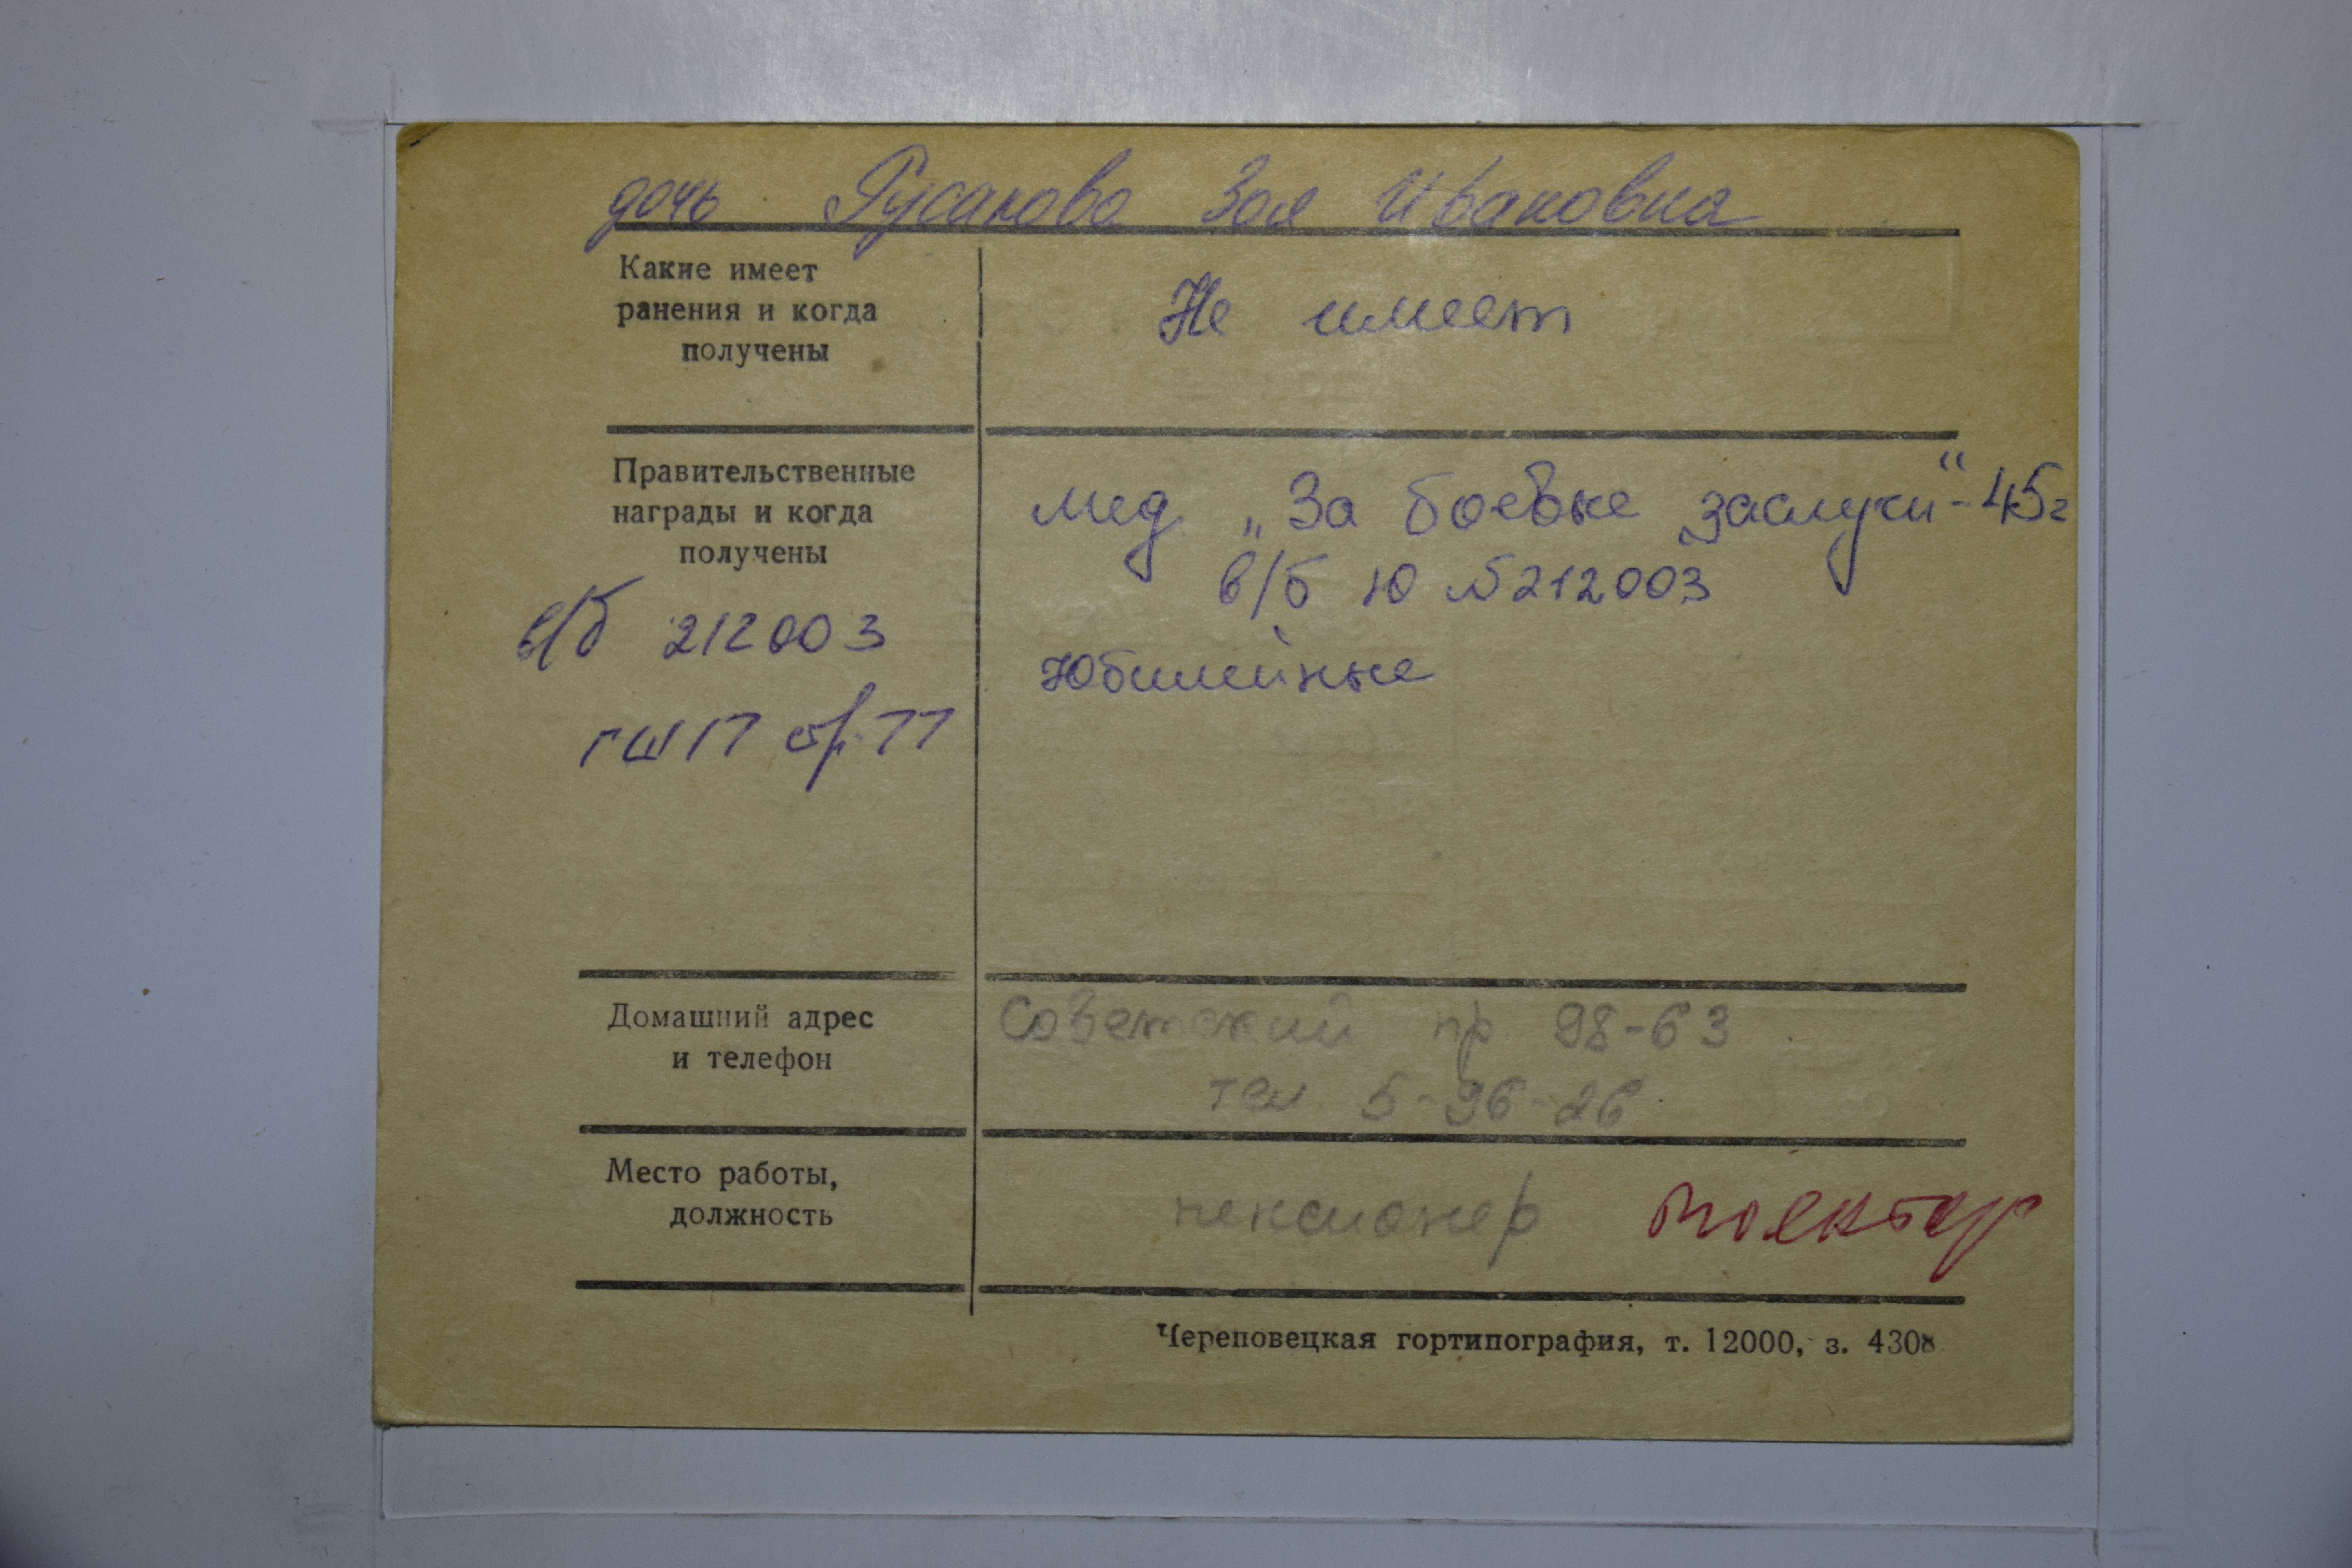 дочь Русакова Зоя Ивановна
Какие имеет
ранения и когда
получены
Не имеет
Правительственные
награды и когда
получены
в/б 212003
стр. 77
мед. „За боевые заслуги“ - 45г
в/б Ю №212003
Юбилейные
Домашний адрес
и телефон
Советский пр 98-63
тел 5-96-26
Место работы,
должность
пенсионер
Череповецкая гортипография, т. 12000, з. 4308